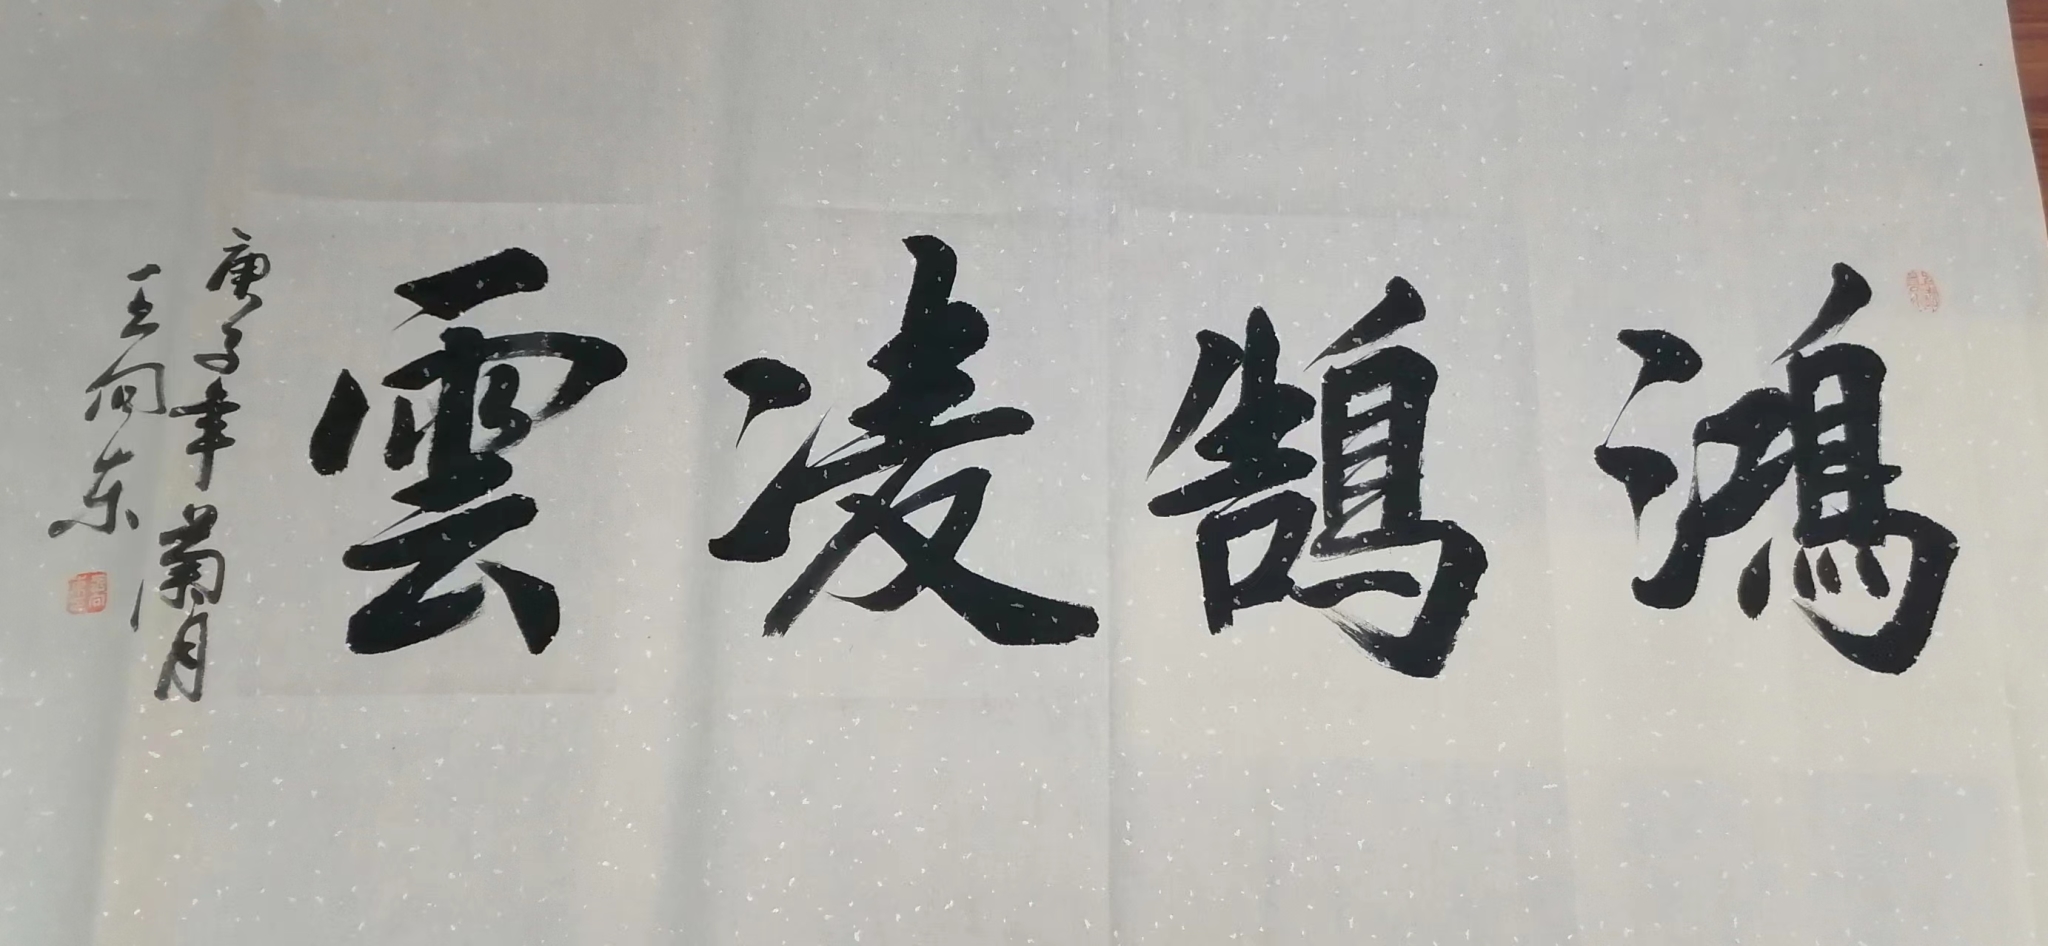 鴻鵠凌雲
庚子年蘭月
王向东